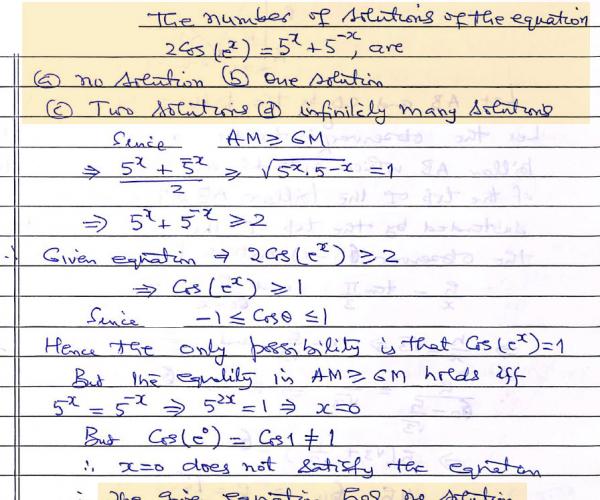 The number of solutions of the equation
2Cos(e^x) = 5^x + 5^-x, are
(a) no solution (b) one solution
(c) Two solutions (d) infinitely many solutions
Since AM ≥ GM
⇒ (5^x + 5^-x)/2 ≥ √(5^x . 5^-x) = 1
⇒ 5^x + 5^-x ≥ 2
∴ Given equation ⇒ 2Cos(e^x) ≥ 2
⇒ Cos(e^x) ≥ 1
Since -1 ≤ Cosθ ≤ 1
Hence the only possibility is that Cos(e^x) = 1
But the equality in AM ≥ GM holds iff
5^x = 5^-x ⇒ 5^2x = 1 ⇒ x = 0
But Cos(e^0) = Cos1 ≠ 1
∴ x=0 does not satisfy the equation
∴ The given equation has no solution